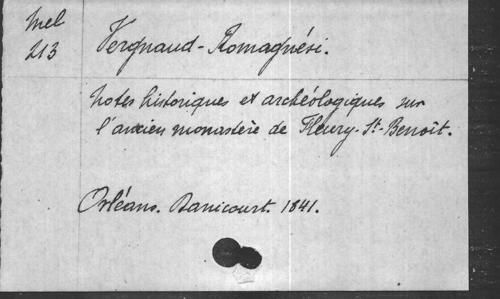 Mel
213
Vergnaud-Romagnési.
Notes historiques et archéologiques sur
l'ancien monastère de Fleury-St-Benoît.
Orléans. Danicourt. 1841.